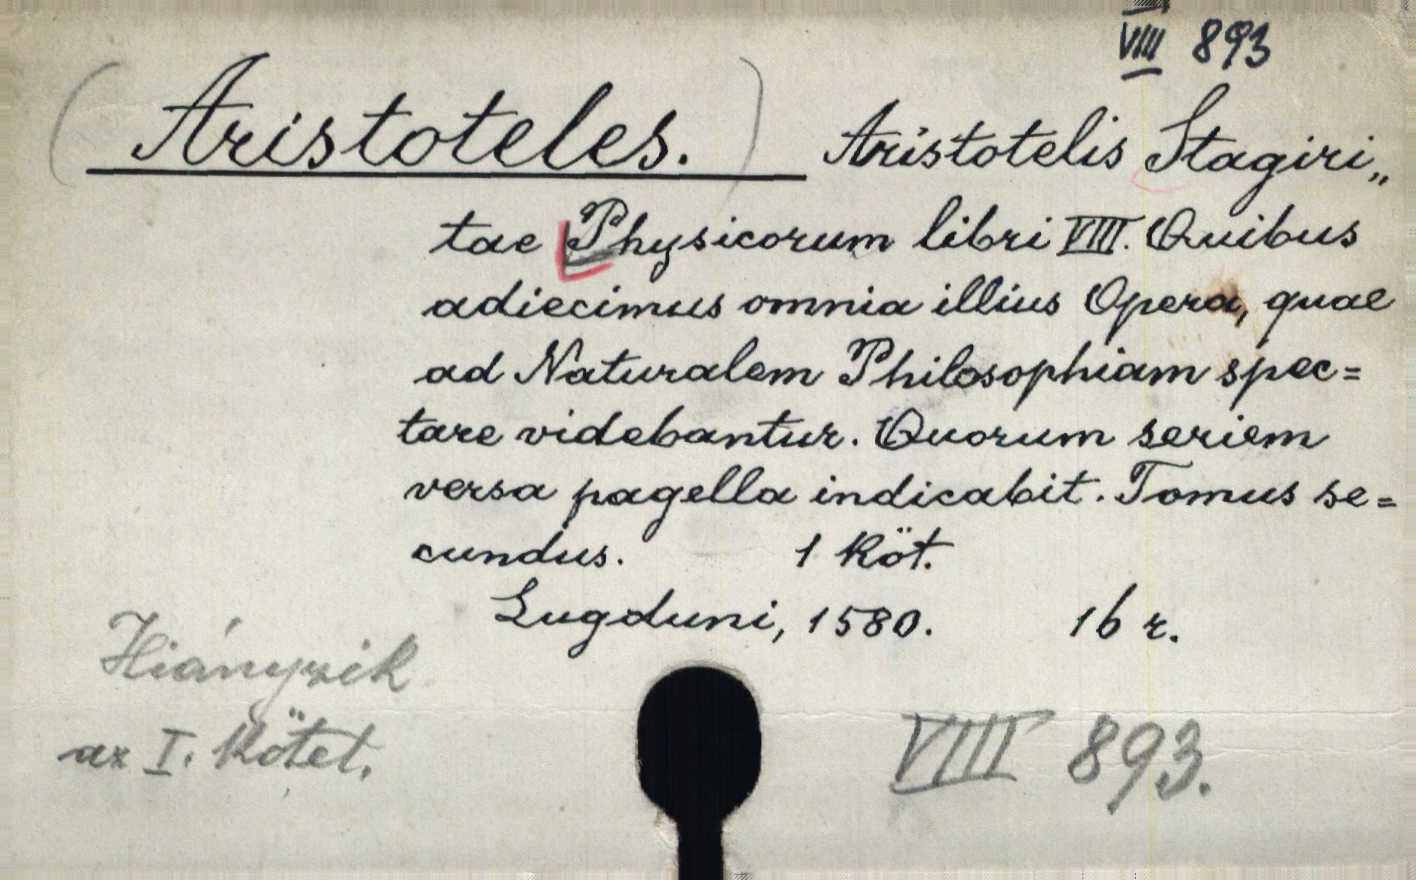 VIII 893
(Aristoteles.) Aristotelis Stagiri„
tae Physicorum libri VIII. Quibus
adiecimus omnia illius Opera, quae
ad Naturalem Philosophiam spec=
tare videbantur. Quorum seriem
versa pagella indicabit. Tomus se=
cundus. 1 Köt.
Lugduni, 1580. 16 r.
Hiányzik
az I. kötet.
VIII 893.